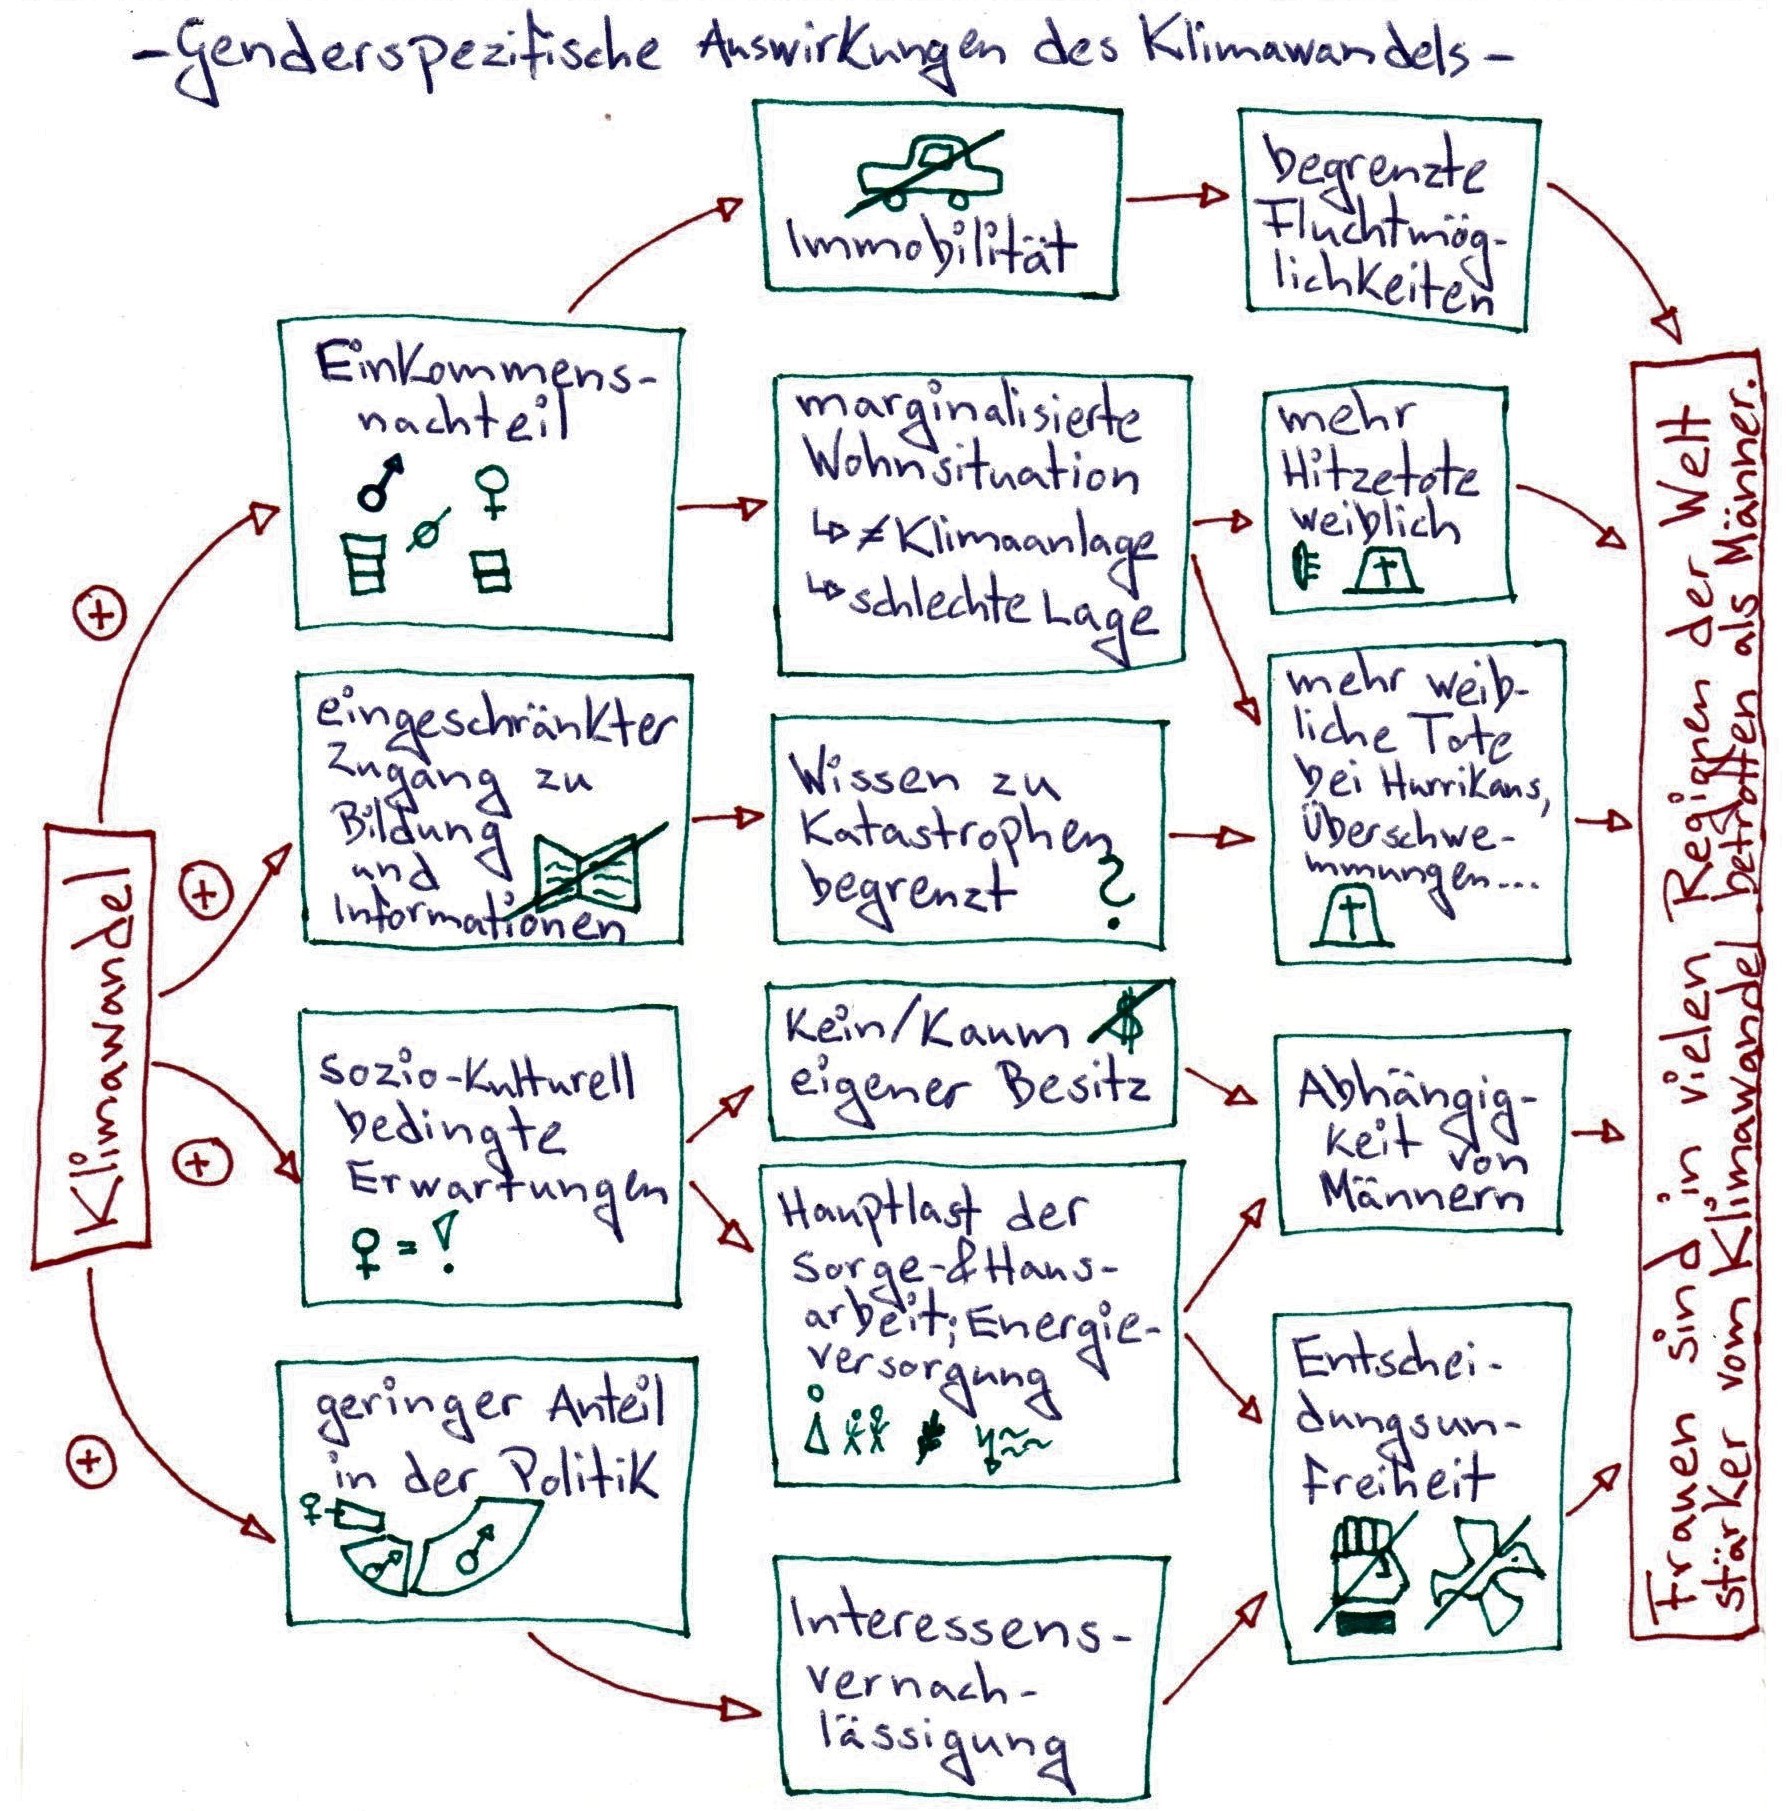 -Genderspezifische Auswirkungen des Klimawandels-
Immobilität
begrenzte
Fluchtmög-
lichkeiten
Einkommens-
nachteil
marginalisierte
Wohnsituation
↳ ≠ Klimaanlage
↳ schlechte Lage
mehr
Hitzetote
weiblich
eingeschränkter
Zugang zu
Bildung
und
Informationen
Wissen zu
Katastrophen
begrenzt ?
mehr weib-
liche Tote
bei Hurrikans,
Überschwe-
mmungen...
Klimawandel
sozio-kulturell
bedingte
Erwartungen
♀ = !
kein/kaum $
eigener Besitz
Abhängig-
keit von
Männern
Hauptlast der
Sorge-&Haus-
arbeit; Energie-
versorgung
geringer Anteil
in der Politik
Entschei-
dungsun-
freiheit
Interessens-
vernach-
lässigung
Frauen sind in vielen Regionen der Welt
stärker vom Klimawandel betroffen als Männer.